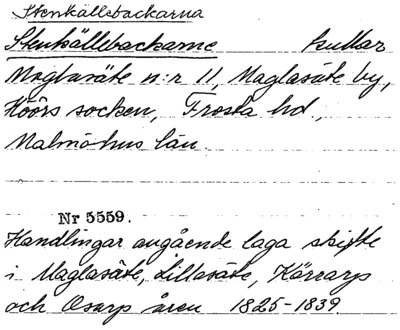 Stenkällebackarna
Stenkällebackarne kullar
Maglasäte n:r 11, Maglasäte by,
Höörs socken, Frosta hd.,
Malmöhus län.
Nr 5559.
Handlingar angående laga skifte
i Maglasäte, Lillasäte, Kärrarp
och Osarp åren 1825-1839.